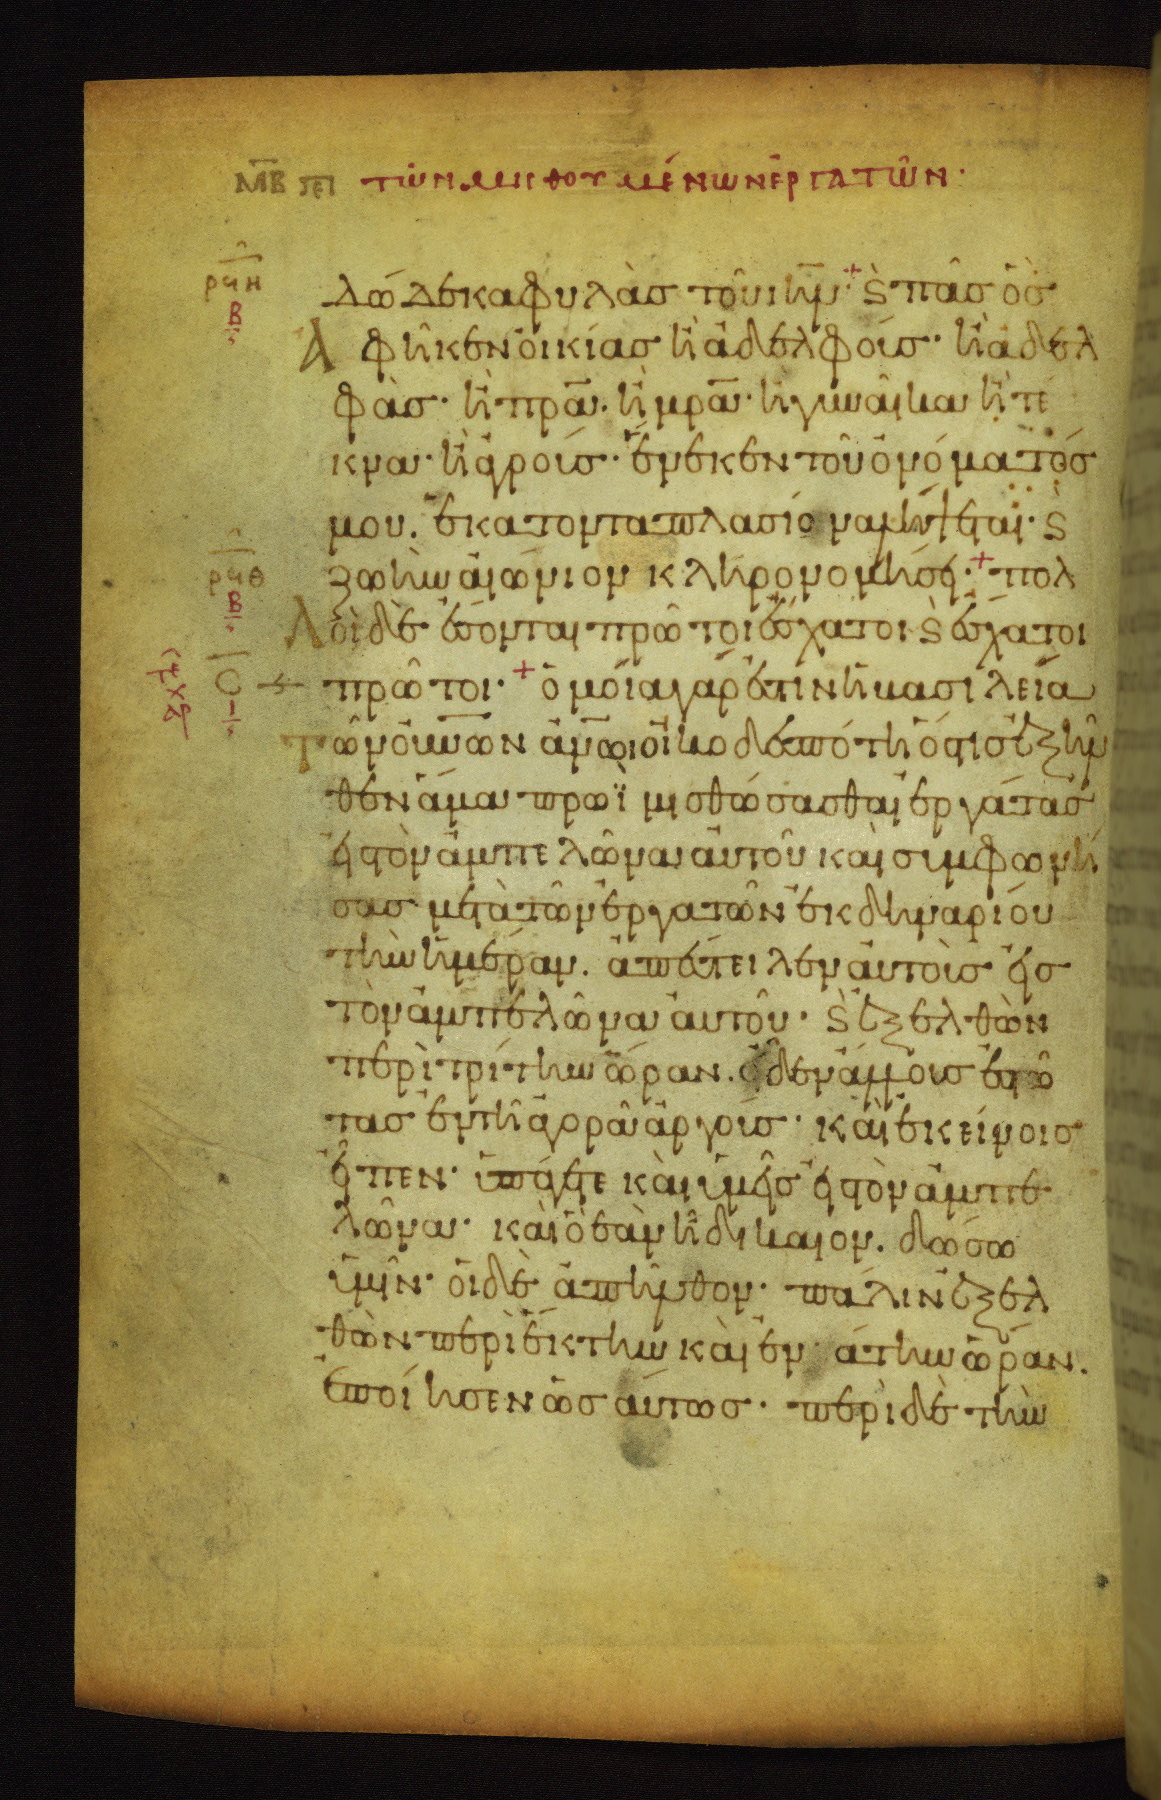 ΜΒ πε τῶν μισθουμένων ἐργατῶν·
ρϟη
Β
δώδεκα φυλὰς τοῦ ιηλ· ϗ πᾶς ὃς
ἀφῆκεν οἰκίας ἢ ἀδελφοὺς· ἢ ἀδελ
φὰς· ἢ πρα· ἢ μρα· ἢ γυναῖκα ἢ τέ
κνα· ἢ ἀγροὺς· ἕνεκεν τοῦ ὀνόματός
μου. ἑκατονταπλασίονα λήψεται· ϗ
ζωὴν αἰώνιον κληρονομήσει· πολ
ρϟθ
Β
λοὶ δὲ ἔσονται πρῶτοι ἔσχατοι ϗ ἔσχατοι
πρῶτοι· ὁμοία γάρ ἐστιν ἡ βασιλεία
τῶν οὐνῶν ἀνωι οἰκοδεσπότη ὅστις ἐξῆλ
θεν ἅμα πρωῒ μισθώσασθαι ἐργάτας
εἰς τὸν ἀμπελῶνα αὐτοῦ καὶ συμφωνή
σας μετὰ τῶν ἐργατῶν ἐκ δηναρίου
τὴν ἡμέραν. ἀπέστειλεν αὐτοὺς εἰς
τὸν ἀμπελῶνα αὐτοῦ· ϗ ἐξελθὼν
περὶ τρίτην ὥραν. εἶδεν ἄλλους ἑστῶ
τας ἐν τῆ ἀγορᾶ ἀργούς· καὶ ἐκείνοις
εἶπεν· ὑπάγετε καὶ ὑμεῖς εἰς τὸν ἀμπε
λῶνα· καὶ ὃ ἐὰν ἦ δίκαιον. δώσω
ὑμῖν· οἱ δὲ ἀπῆλθον· πάλιν ἐξελ
θὼν περὶ ἕκτην καὶ ἐννάτην ὥραν.
ἐποίησεν ὡσαύτως· περὶ δὲ τὴν